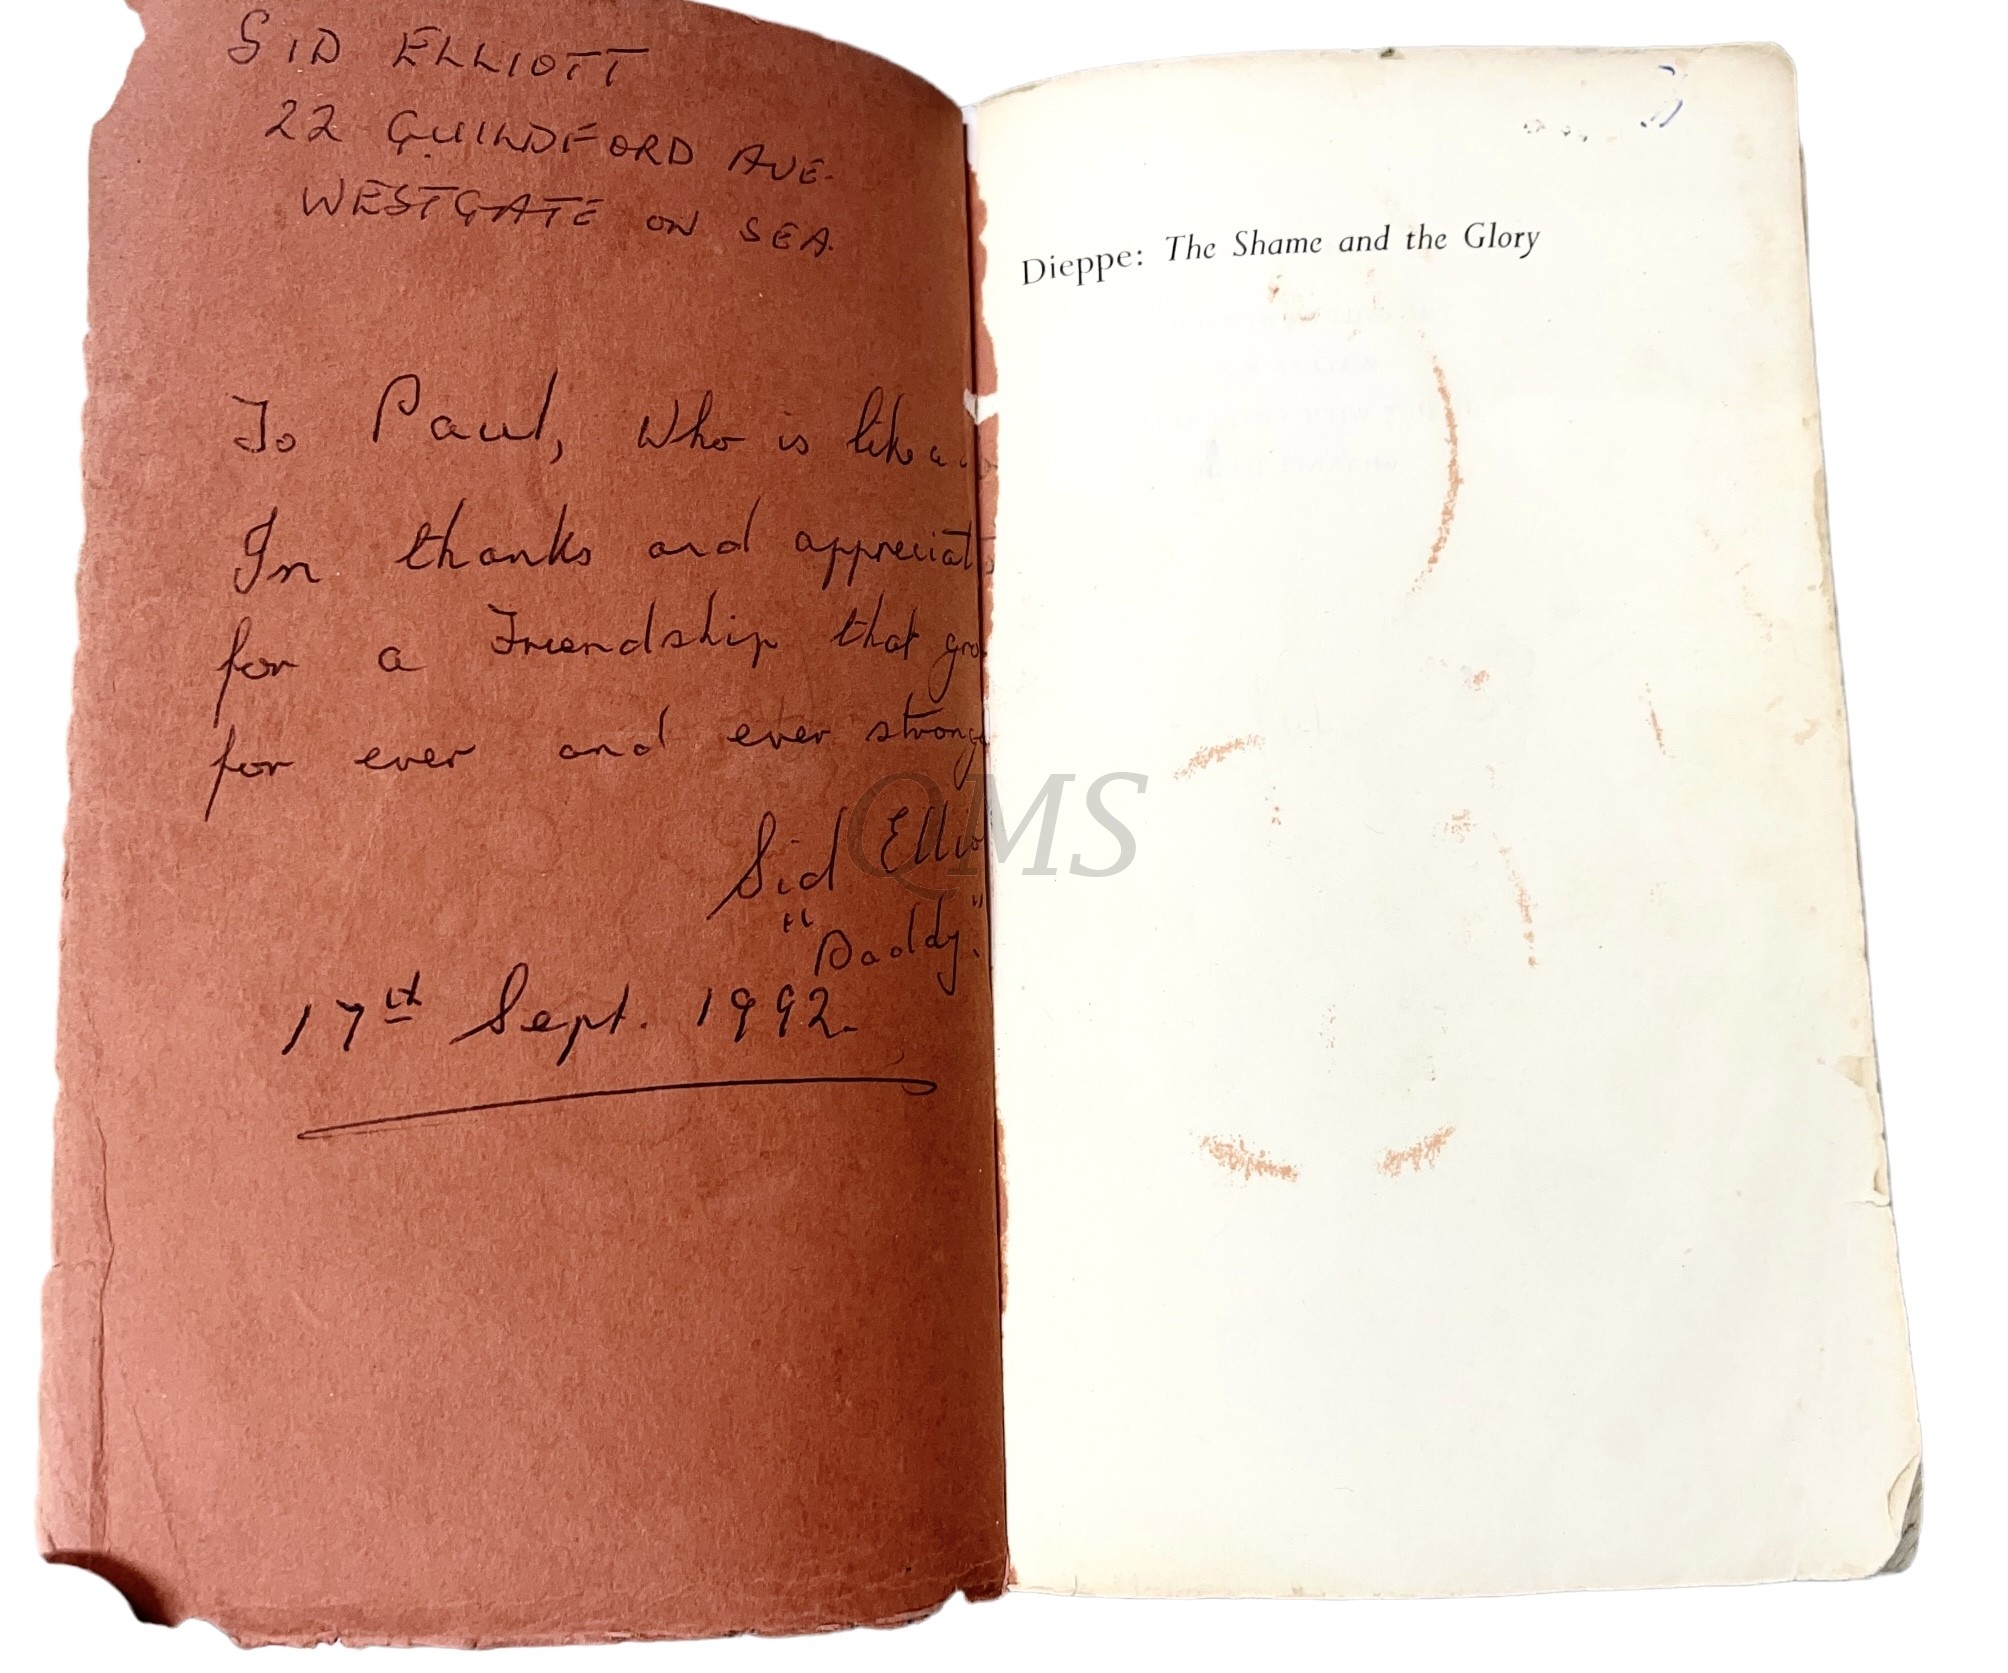 SID ELLIOTT
22 GUILDFORD AVE.
WESTGATE ON SEA.
To Paul, Who is like a
In thanks and appreciat
for a Friendship that gro
for ever and ever stronge
Sid Ellio
"Daddy."
17th Sept. 1992.
Dieppe: The Shame and the Glory
QMS